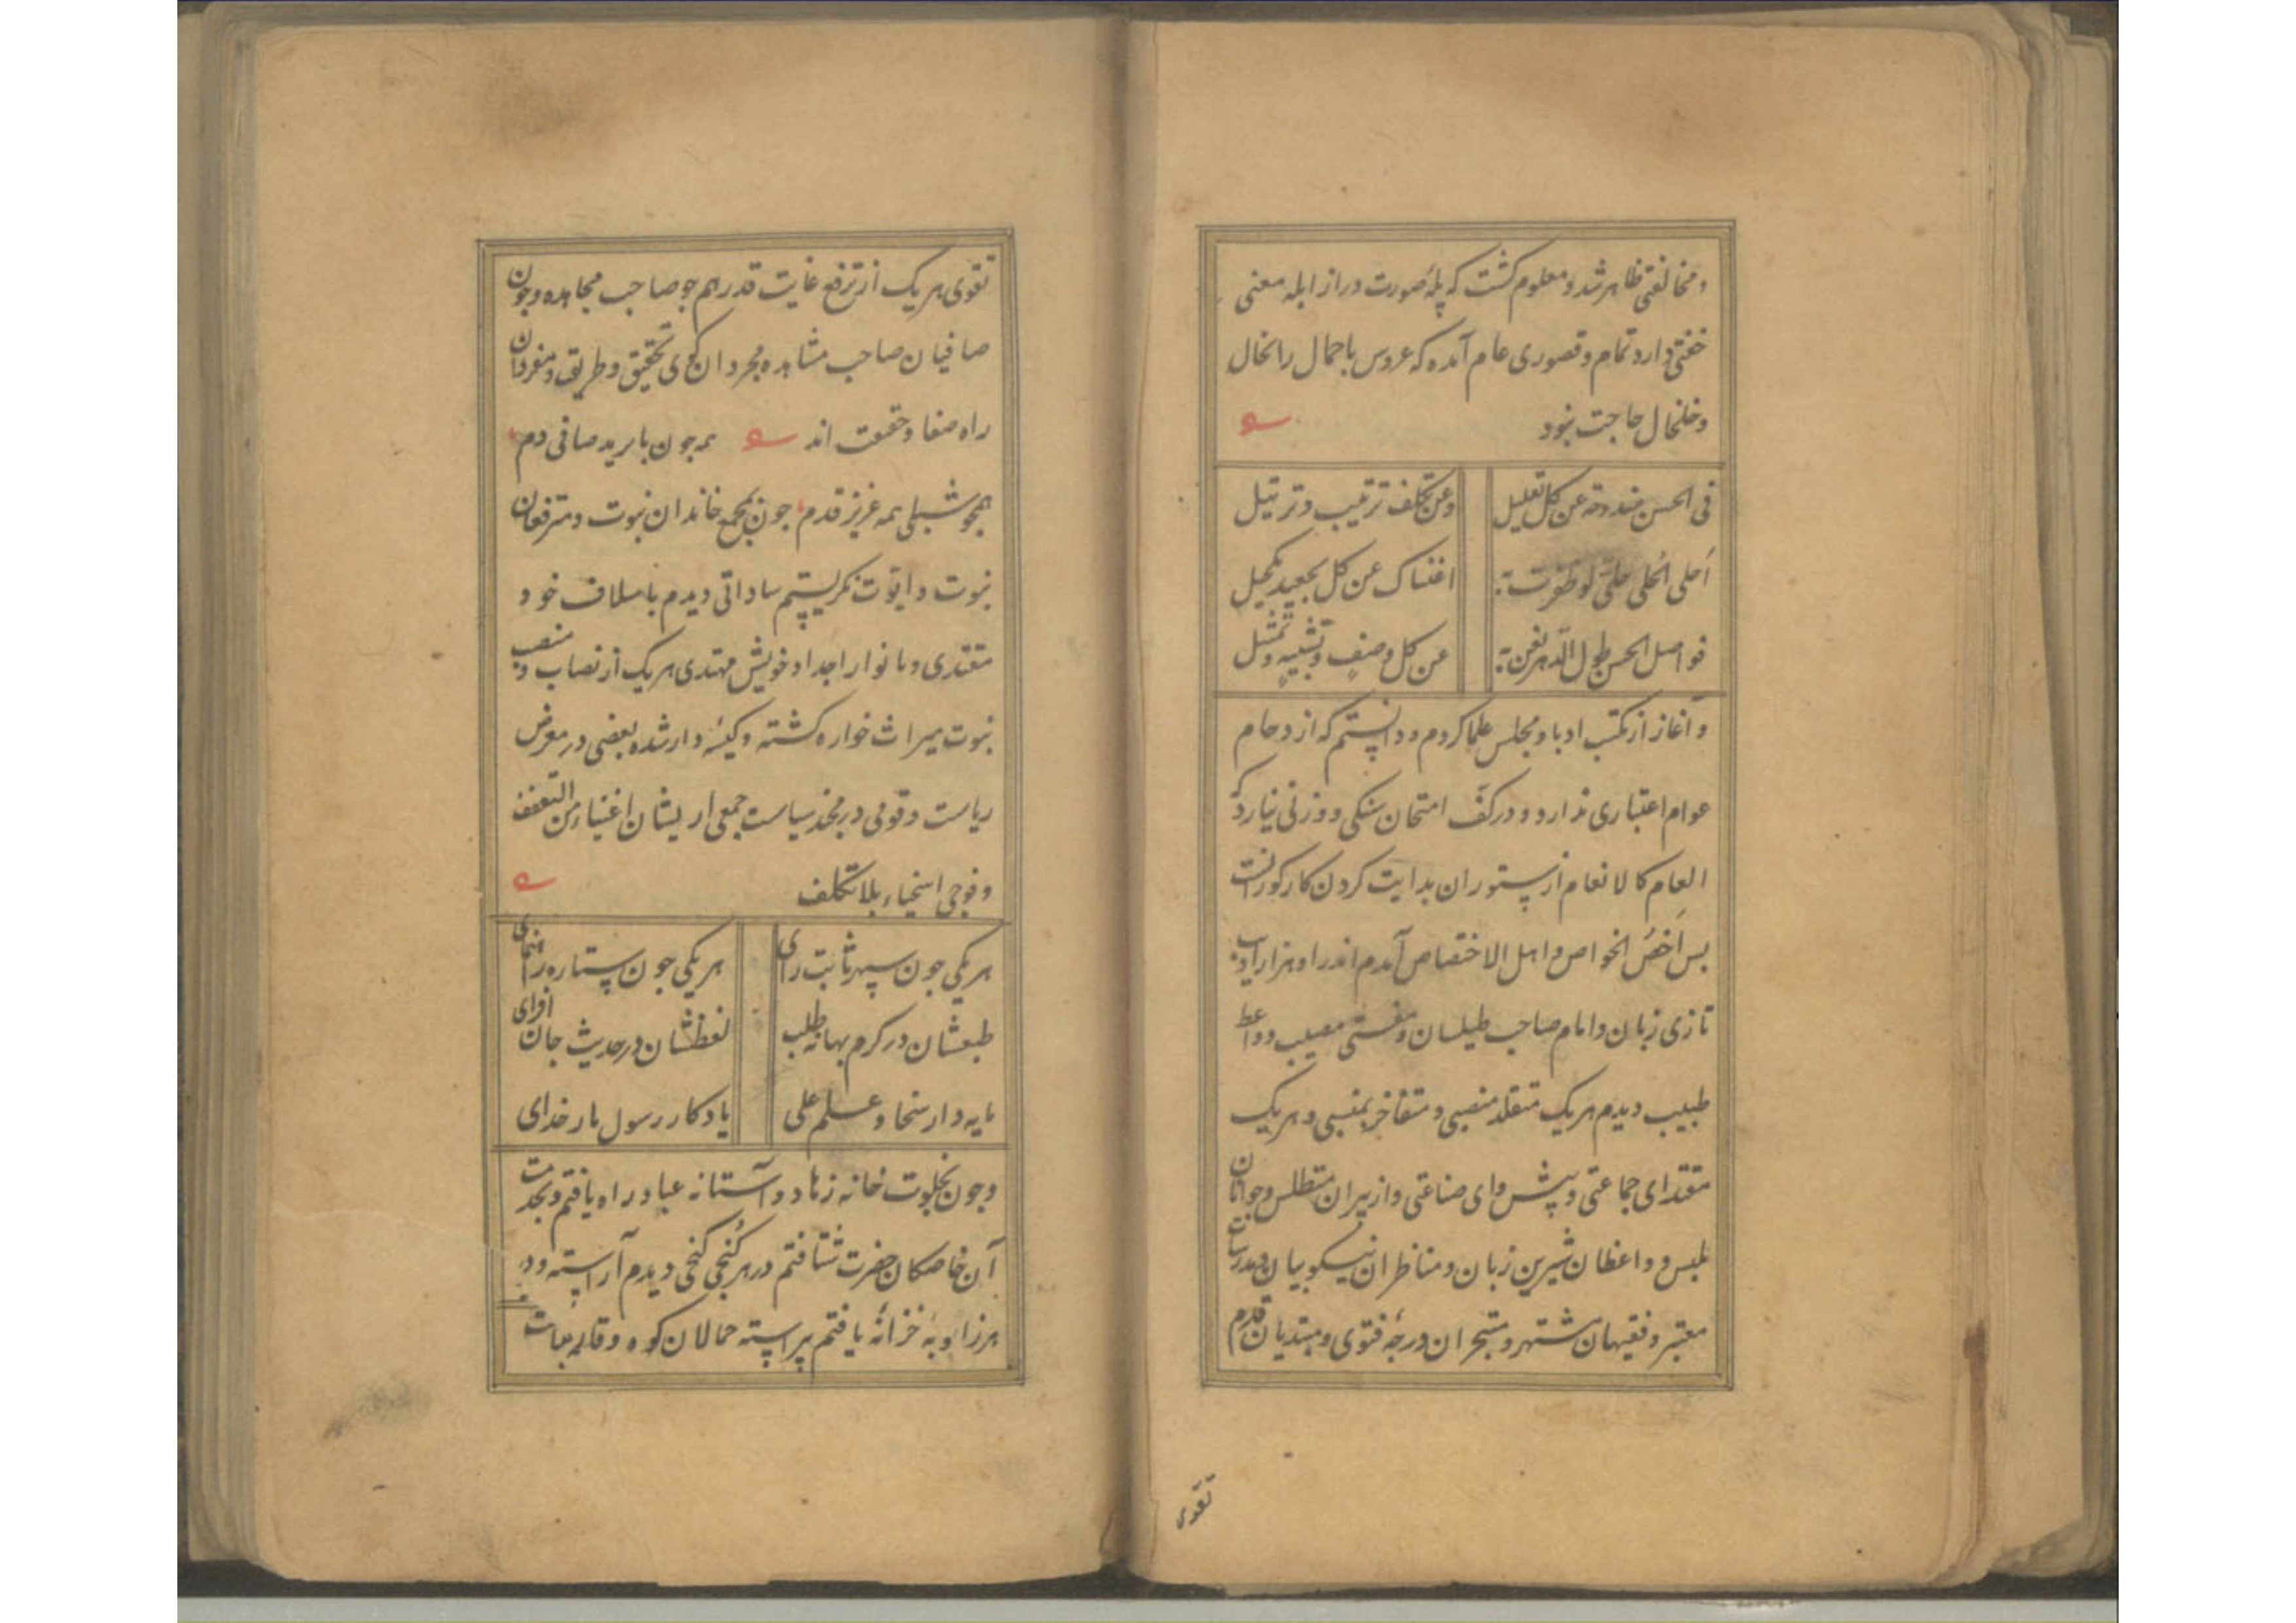 ومخالفتی ظاهر شد و معلوم کشت که پلهٔ صورت دراز ابله معنی
خفتی دارد تمام و قصوری عام آمده که عروس باجمال را بخال
وخلخال حاجت نبود
فی الحسن مندوحة عن کل تعلیل
وعن تکلف ترتیب وترتیل
اَحلی الحُلی حلی لو ظفرت به
اغناک عن کل تجعید وتکحیل
فواصل الحسن طول الدهر نفن به
عن کل وصفٍ وتشبیهٍ وتمثیل
و آغاز از مکتب ادبا و مجلس علما کردم و دانستم که ازدحام
عوام اعتباری ندارد و در کفّ امتحان سنکی و وزنی نیارد که
العام کالانعام از ستوران بدایت کردن کار کورانست
بس اَخصُ الخواص و اهل الاختصاص آمدم اندر او هزار ادیب
تازی زبان و امام صاحب طیلسان و مفتی مصیب و واعظ
طبیب دیدم هر یک متقلد منصبی و متفاخر بمنسبی و هر یک
مقتدای جماعتی و پیشوای صناعتی و از پیران متطلس و جوانان
ملبس و واعظان شیرین زبان و مناظران نیکو بیان و مدرسان
معتبر و فقیهان مشتهر و متبحران درجهٔ فتوی و مبتدیان قدم
تقوی
تقوی هر یک از ترفع غایت قدر هم جو صاحب مجاهده و جون
صافیان صاحب مشاهده مجردان کوی تحقیق و طریق و منفردان
راه صفا و حقیقت اند همه جون بایزید صافی دم
همجو شبلی همه عزیز قدم جون بمجمع خاندان نبوت و مترفعان
نبوت و ابوت نکریستم ساداتی دیدم باسلاف خود
مقتدی و بانوار اجداد خویش مهتدی هر یک از نصاب و منصب
نبوت میراث خواره کشته و کیسه دار شده بعضی در معرض
ریاست و قومی در مخد سیاست جمعی از یشان اغنیاء من التعفف
و فوجی اسخیاء بلا تکلف
هر یکی جون سپهر ثابت رای
هر یکی جون ستاره راهنمای
طبعشان در کرم بهانه طلب
لفظشان در حدیث جان افزای
مایه دار سخا و علم علی
یادکار رسول بار خدای
و جون بخلوت خانه زهاد و آستانه عباد راه یافتم و بخدمت
آن خاصکان حضرت شتافتم در هر کُنجی کنجی دیدم آراسته و در
هر زاویهٔ خزانهٔ یافتم پیراسته حمالان کوه وقار